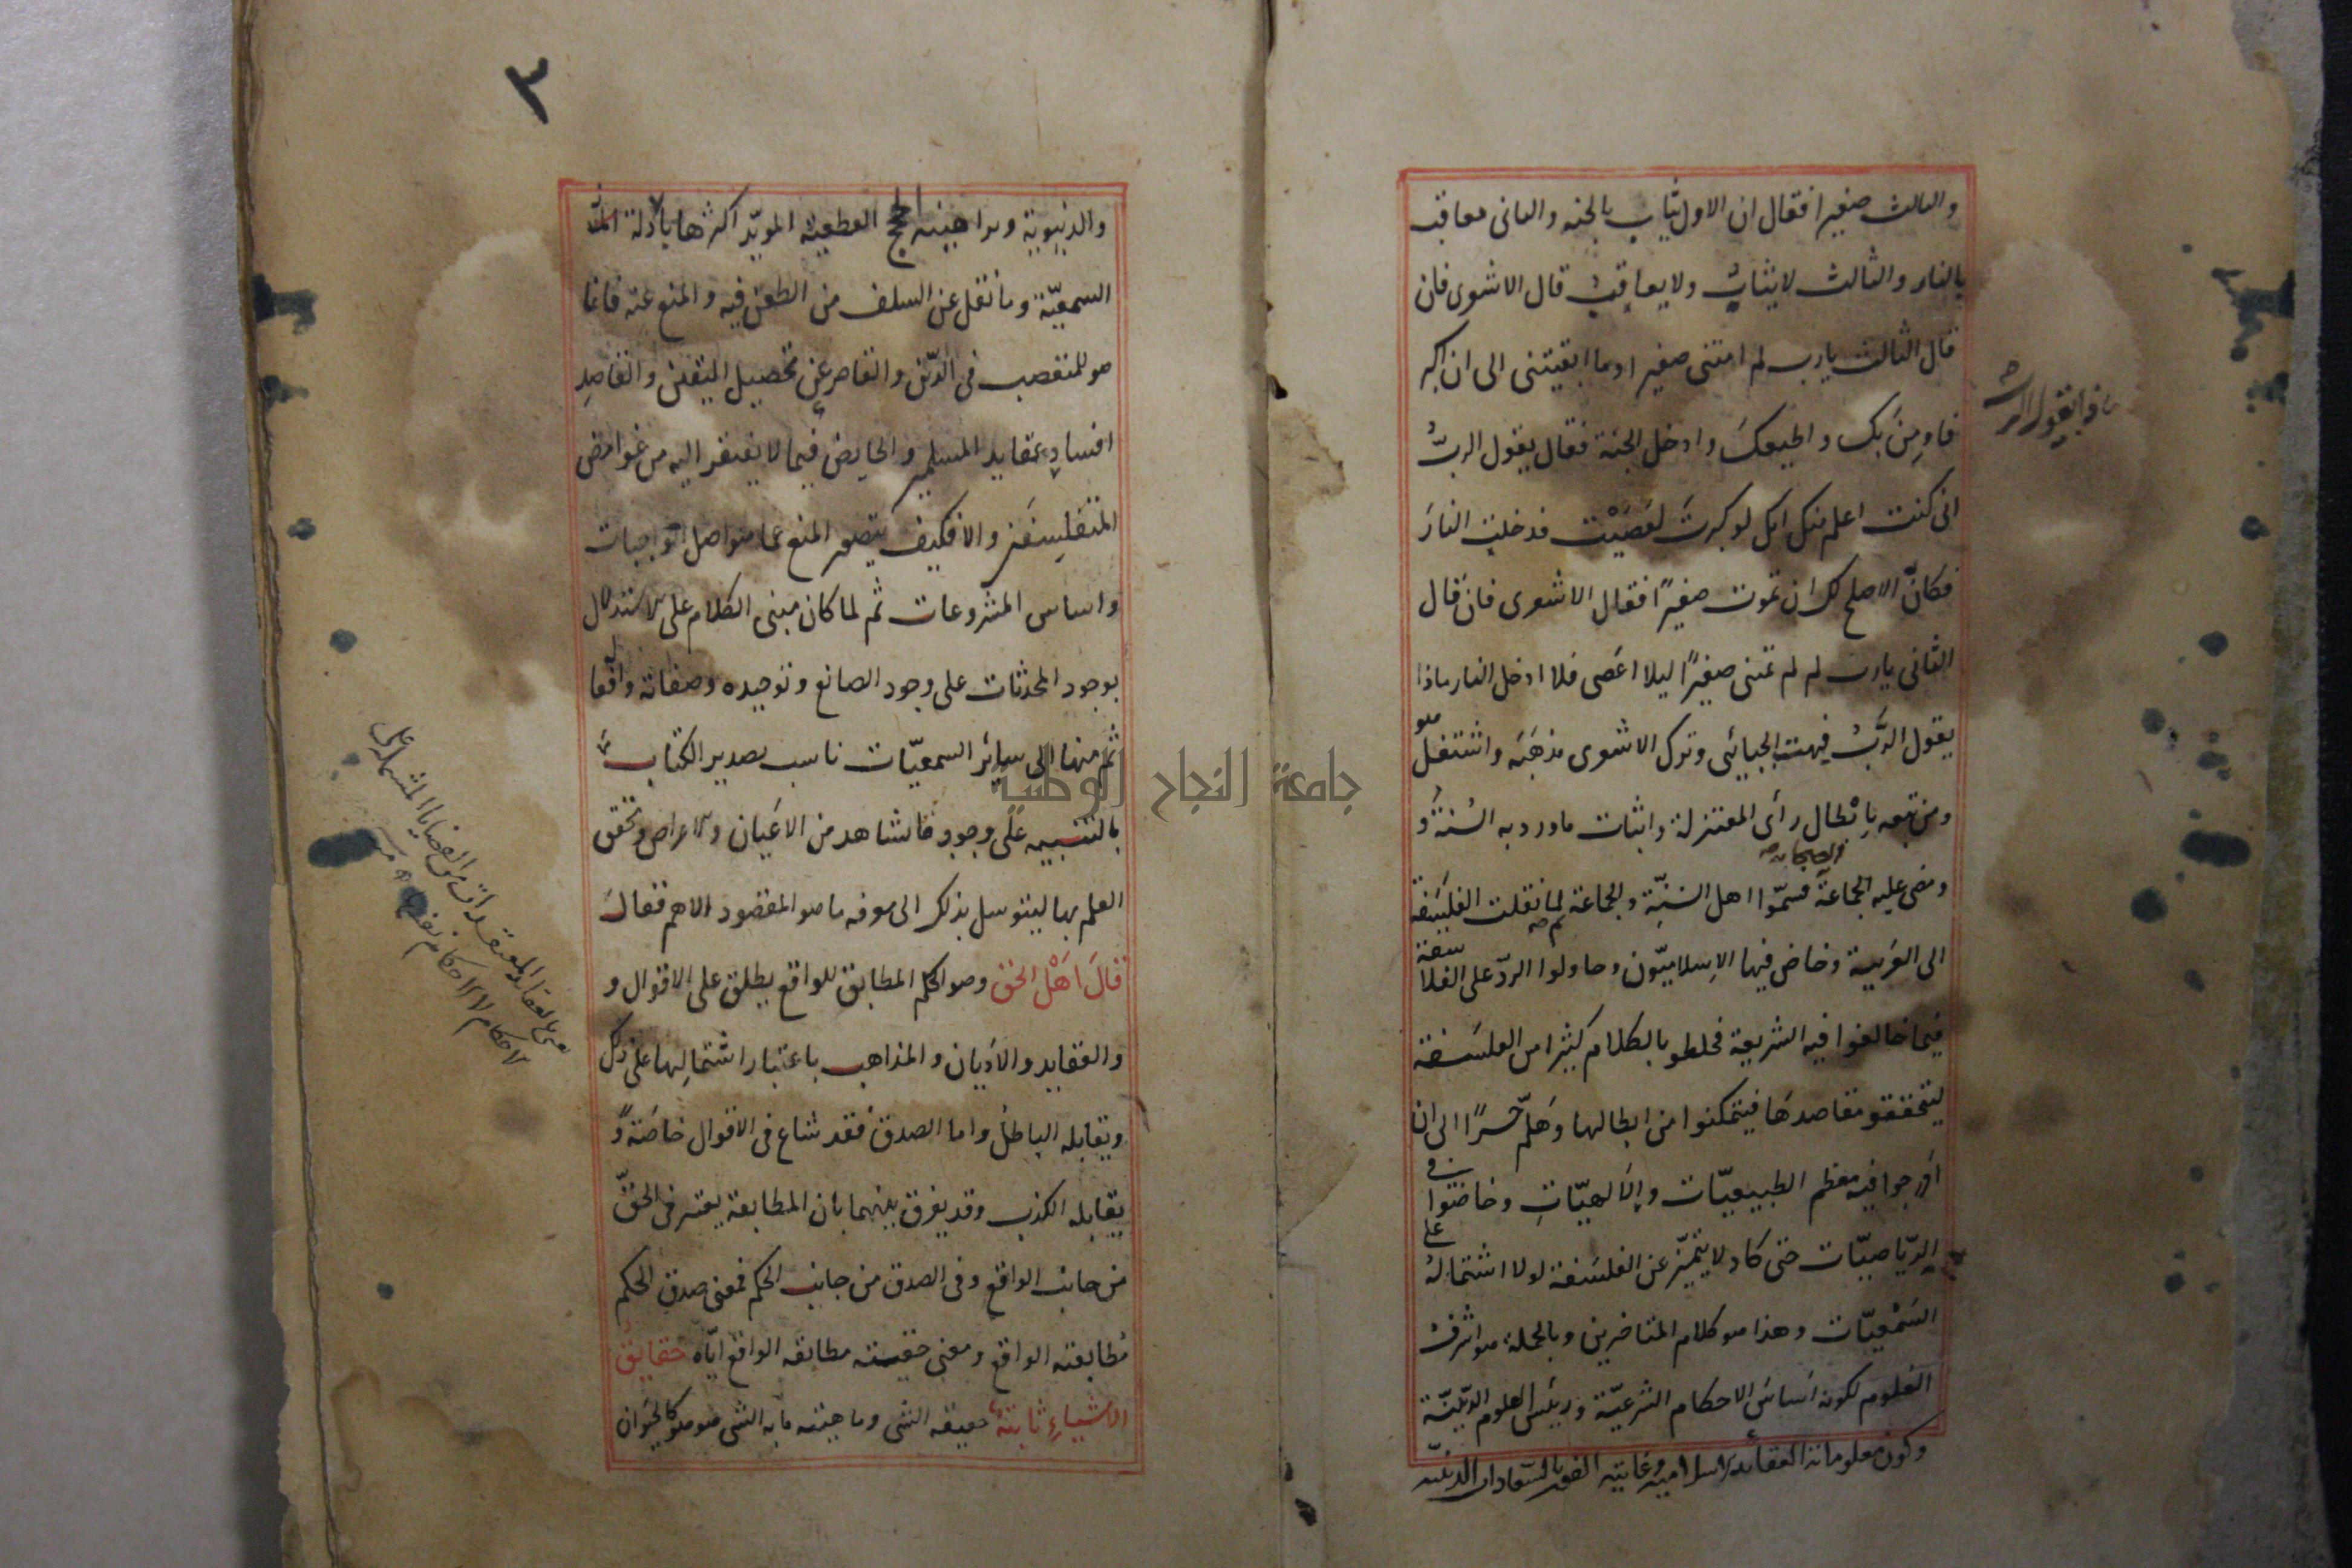 والثالث صغيرا فقال ان الاول يثاب بالجنه والثانى معاقب
بالنار والثالث لا يثاب ولا يعاقب قال الاشعرى فان
قال الثالث يارب لم امتنى صغيرا وما ابقيتنى الى ان اكبر
فاومِنَ بك واطيعك وادخل الجنة فقال يقول الربُّ
ماذا يقول الرب
انى كنت اعلم منك انك لو كبرتَ لعَصَيْت فدخلت النارَ
فكانَ الاصلح لك ان تموت صغيرًا فقال الاشعرى فان قال
الثانى يارب لم لم تمتنى صغيرًا ليلا اعصى فلا ادخل النار ماذا
يقول الرَّبُّ فبهت الجبائى وترك الاشعرى مذهبَه واشتغل هو
ومن تبعه بِابْطال رأى المعتزلة واثبات ماورد به السُنة و
ومضى عليه الجماعة فسمّوا اهل السُنّية والجماعة ثم لما نقلت الفلسَفة
والصحابه
الى العَربية وخاض فيها الاِسلاميّون وحاولوا الردّ على الفلاسفة
فيما خالفوا فيه الشريعة فخلطو بالكلام كثيرا من الفلسَفة
ليتحققو مقاصدهَا فيتمكنوا من ابطالها وَهَلمّ جرًّا الى ان
ادرجوا فيه معظم الطبيعيّات والاَلهيّاتِ وخاضوا فى
الرّياضيّات حتى كاد لا يتميّز عن الفلسَفة لولا اشتمالهُ على
السَمْعِيّات وهذا هو كلام المتاخرين وبالجملة هو اشرفُ
العلوم لكونه اَساسَ الاحكام الشرعيّة ورئيس العلوم الدّينيّة
وكون معلوماته العقايد الاسلاميه وغايته الفوز بالسّعادات الدينيّه
٢
والدنيوية وبراهينه الحجج القطعية المويّد اكثرها بادلة
السمعيّة وما نقل عن السلف من الطعن فيه والمنع عنه فانما
هو للمتعصب فى الدّين والقاصر عن تحصيل اليقين والقاصِدِ
افسادِ عقايد المسلمين والخايض فيما لا يفتقر اليه من غوامض
المتفلسِفَين والا فكيف يتصور المنع عما هو اصل الواجبات
واساس المشروعات ثم لما كان مبنى الكلام على الاستدلال
بوجود المحدثات على وجود الصانع وتوحيده وصفاته وافعاله
ثم منها الى سائر السمعيّات ناسب تصدير الكتاب
بالتنبيه على وجود ما نشاهد من الاعَيان والاعراض وتحقق
العلم بها ليتوسل بذلك الى معرفه ما هو المقصود الاهم فقالَ
قَالَ اَهْل الحَق وهو الحكم المطابق للواقع يطلق على الاقوال و
والعقايد والاَديان والمذاهب باعتبار اشتمالِها على ذلك
ويقابله الباطل واما الصدق فقد شاع فى الاقوال خاصَة وَ
يقابله الكذب وقد يفرق بينهما بان المطابقة يعتبر فى الحقّ
من جانب الواقع وفى الصدق من جانب الحكم فمعنى صدق الحكم
مُطابقته الواقع ومعنى حقيته مطابقه الواقع ايّاه حقايق
الاَشياءِ ثابتهٌ حقيقه الشى وماهيته مابه الشى هو هو كالحيَوان
جامعة النجاح الوطنية